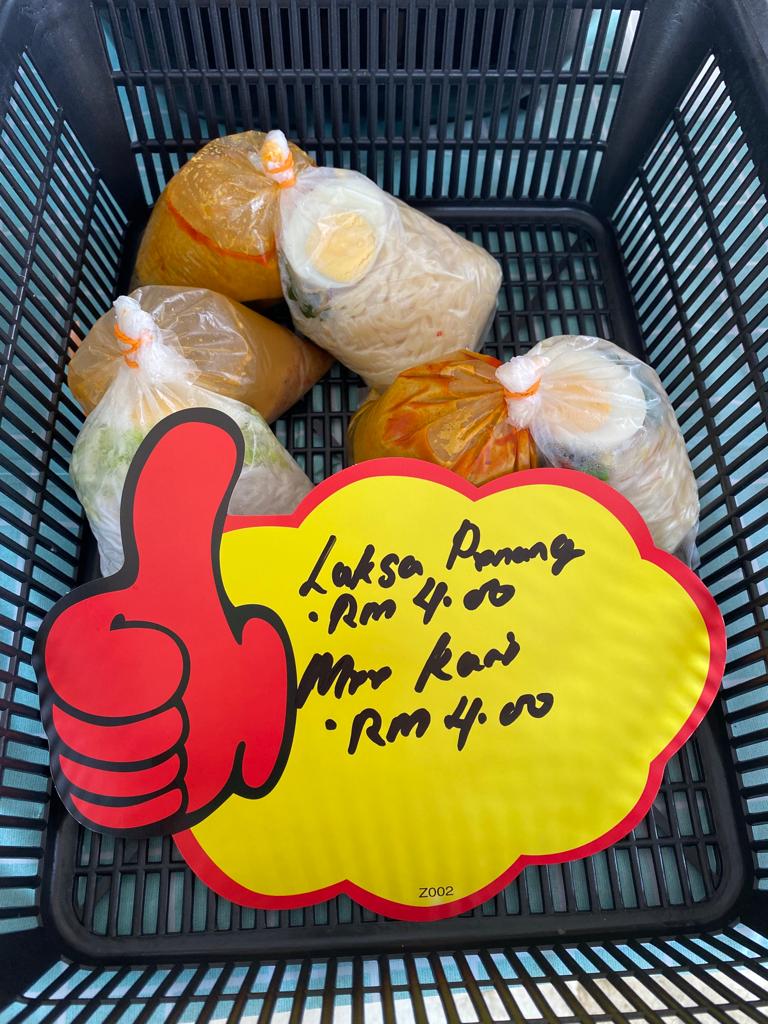 Laksa Penang
· RM 4.00
Mee Kari
· RM 4.00
Z002